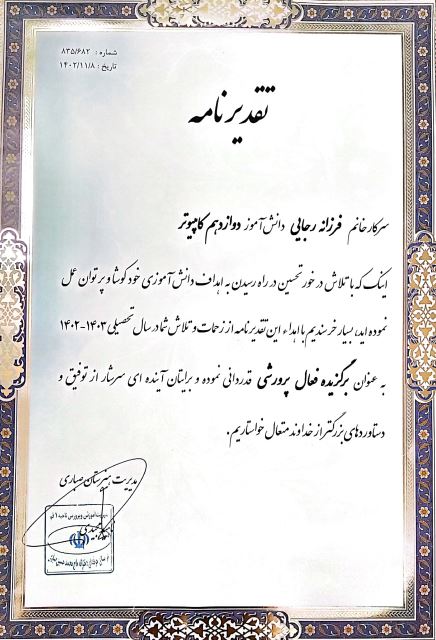 شماره : ۸۳۵/۶۸۲
تاریخ : ۱۴۰۲/۱۱/۸
تقدیرنامه
سرکار خانم فرزانه رجایی دانش‌آموز دوازدهم کامپیوتر
اینک که با تلاش در خور تحسین در راه رسیدن به اهداف دانش آموزی خود کوشا و پر توان عمل
نموده اید، بسیار خرسندیم با اهداء این تقدیرنامه از زحمات و تلاش شما در سال تحصیلی ۱۴۰۳-۱۴۰۲
به عنوان برگزیده فعال پرورشی قدردانی نموده و برایتان آینده ای سرشار از توفیق و
دستاوردهای بزرگتر از خداوند متعال خواستاریم.
مدیریت هنرستان صباری